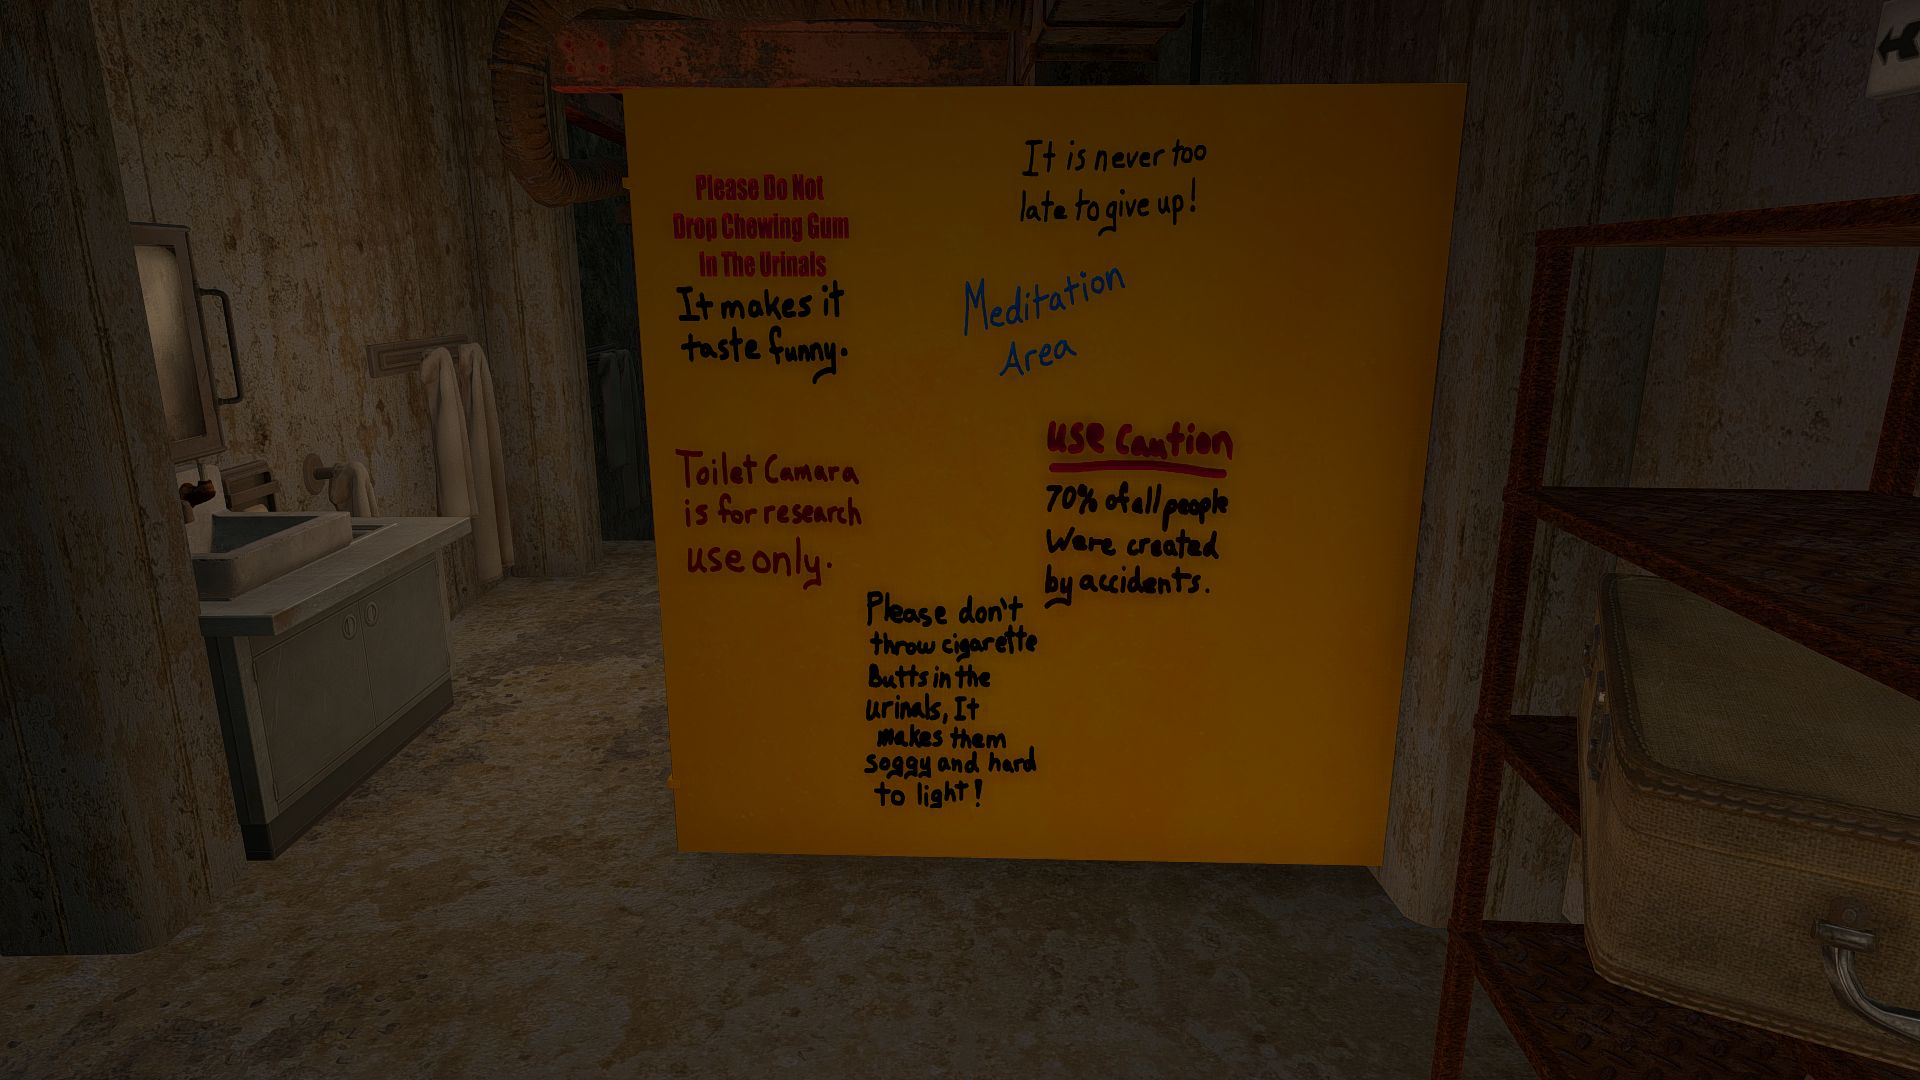 Please Do Not
Drop Chewing Gum
In The Urinals
It makes it
taste funny.
It is never too
late to give up!
Meditation
Area
Toilet Camara
is for research
use only.
use caution
70% of all people
Were created
by accidents.
Please don't
throw cigarette
Butts in the
urinals, It
makes them
soggy and hard
to light!